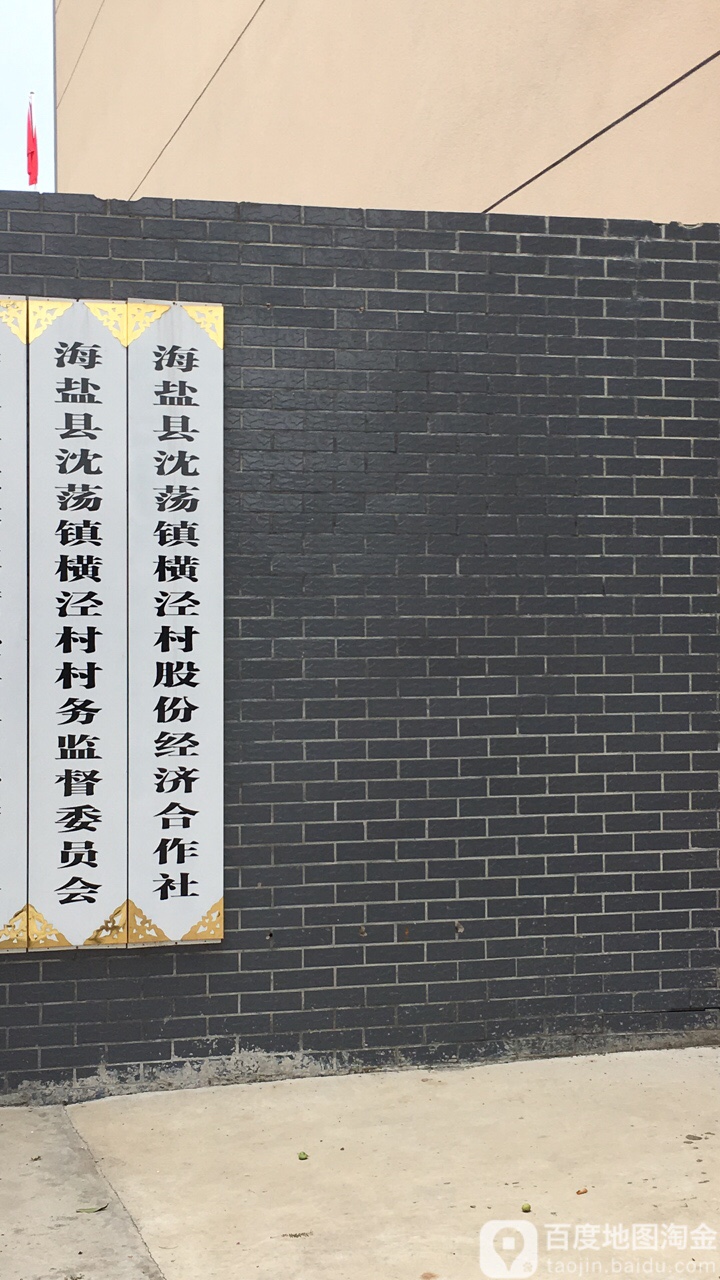 海盐县沈荡镇横泾村股份经济合作社
海盐县沈荡镇横泾村村务监督委员会
百度地图淘金
taojin.baidu.com